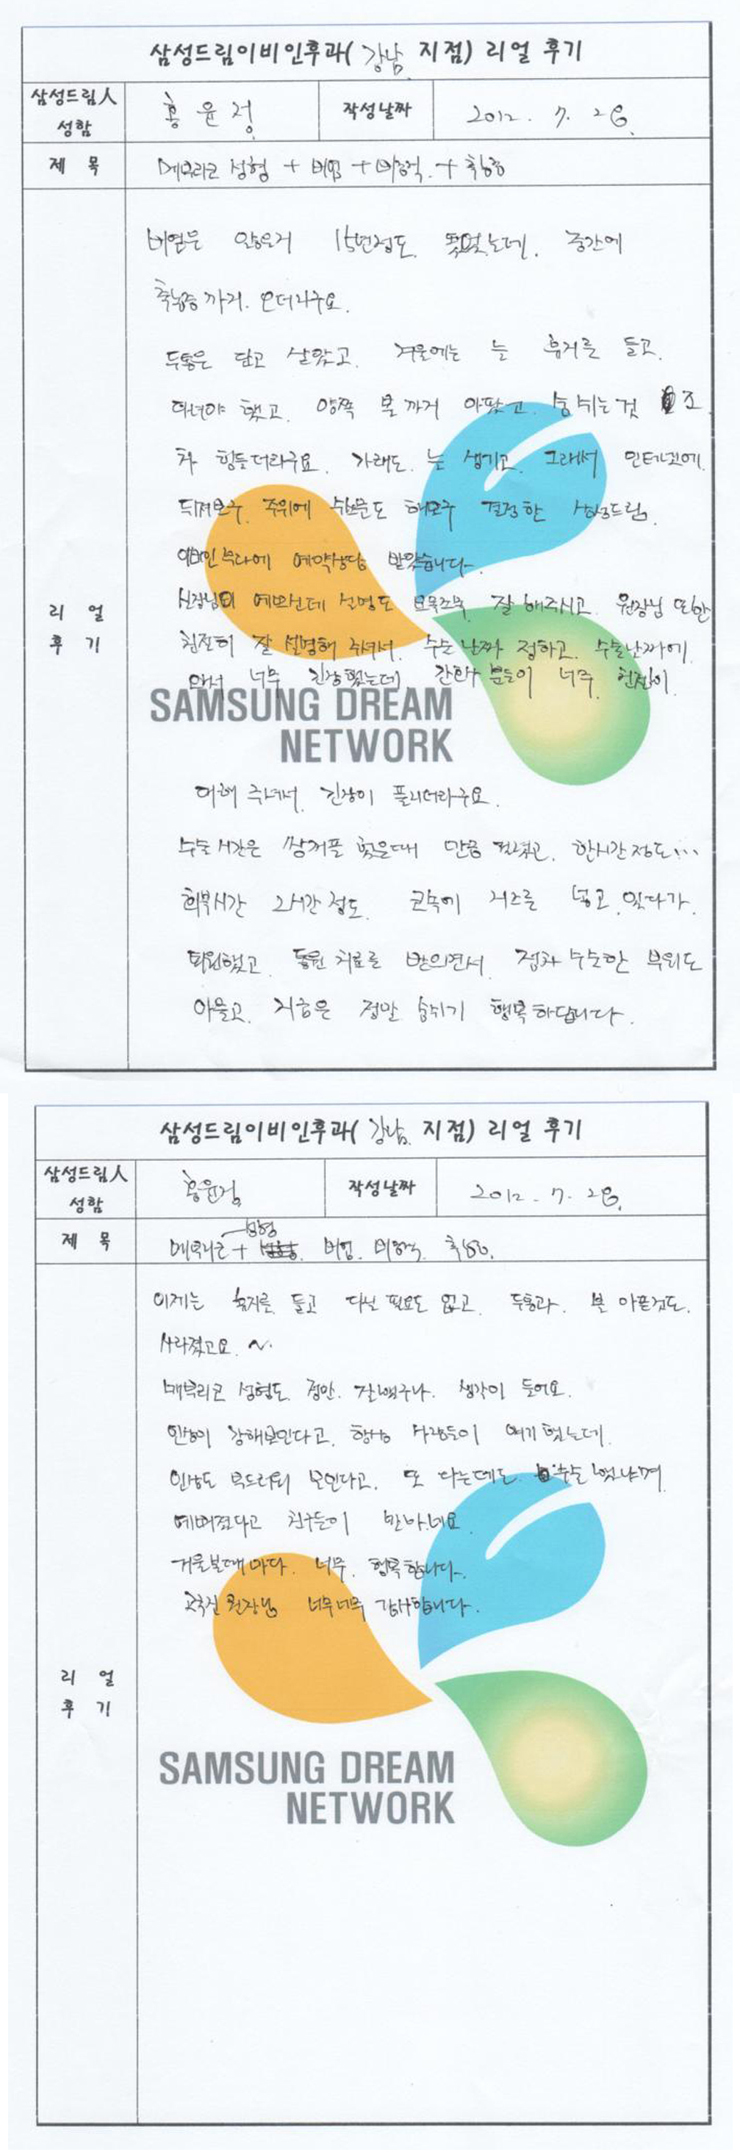 삼성드림이비인후과( 강남 지점) 리얼 후기
삼성드림人 성함
홍윤정
작성날짜
2012. 7. 28.
제 목
메부리코 성형 + 비염 + 비중격 + 축농증
비염은 앓은지 15년정도 됐었는데. 중간에
축농증까지. 오더라구요.
두통은 달고 살았고. 겨울에는 늘 휴지를 들고.
다녀야 했고. 양쪽 볼까지 아팠고. 숨쉬는것 조
차 힘들더라구요. 가래도. 늘 생기고. 그래서 인터넷에.
뒤져보구. 주위에 수소문도 해보구 결정한 삼성드림.
이비인후과에 예약상담 받았습니다.
실장님이 예쁘신데 설명도 조목조목. 잘해주시고. 원장님 또한
친절히 잘 설명해 주셔서. 수술 날짜 정하고. 수술날짜에.
와서 너무 긴장했는데 간호사 분들이 너무. 친절히.
대해 주셔서. 긴장이 풀리더라구요.
수술시간은 쌍커풀 했을때 만큼 편했고. 한시간정도...
회복시간 2시간 정도. 코속에 거즈를 넣고. 있다가.
퇴원했고. 통원 치료를 받으면서. 점차 수술한 부위도
아물고. 지금은 정말 숨쉬기 행복하답니다.
리 얼
후 기
SAMSUNG DREAM
NETWORK
삼성드림이비인후과( 강남. 지점) 리얼 후기
삼성드림人 성함
홍윤정
작성날짜
2012. 7. 28.
제 목
메부리코 + 성형 비염. 비중격. 축농증.
이제는 휴지를. 들고 다닐 필요도 없고. 두통과. 볼 아픈것도.
사라졌고요. ~.
메부리코 성형도. 정말. 잘했구나. 생각이 들어요.
인상이 강해보인다고. 항상 사람들이 얘기 했는데.
인상도 부드러워 보인다고. 또 다른데도. 수술 했냐며
예뻐졌다고 친구들이 난리네요.
거울볼때마다. 너무. 행복합니다.
원장님 너무너무 감사합니다.
리 얼
후 기
SAMSUNG DREAM
NETWORK